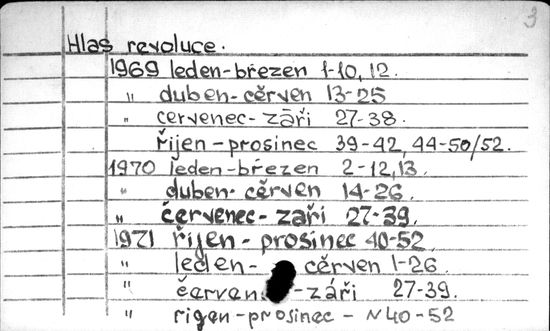 3
Hlas revoluce.
1969 leden-březen 1-10, 12.
" duben-cěrven 13-25
" červenec-záři 27-38.
řijen-prosinec 39-42, 44-50/52.
1970 leden-březen 2-12,13.
" duben-cěrven 14-26.
" červenec-zaři 27-39.
1971 řijen-prosinec 40-52
" leden- cěrven 1-26.
" -záři 27-39.
" řigen-prosinec - N40-52